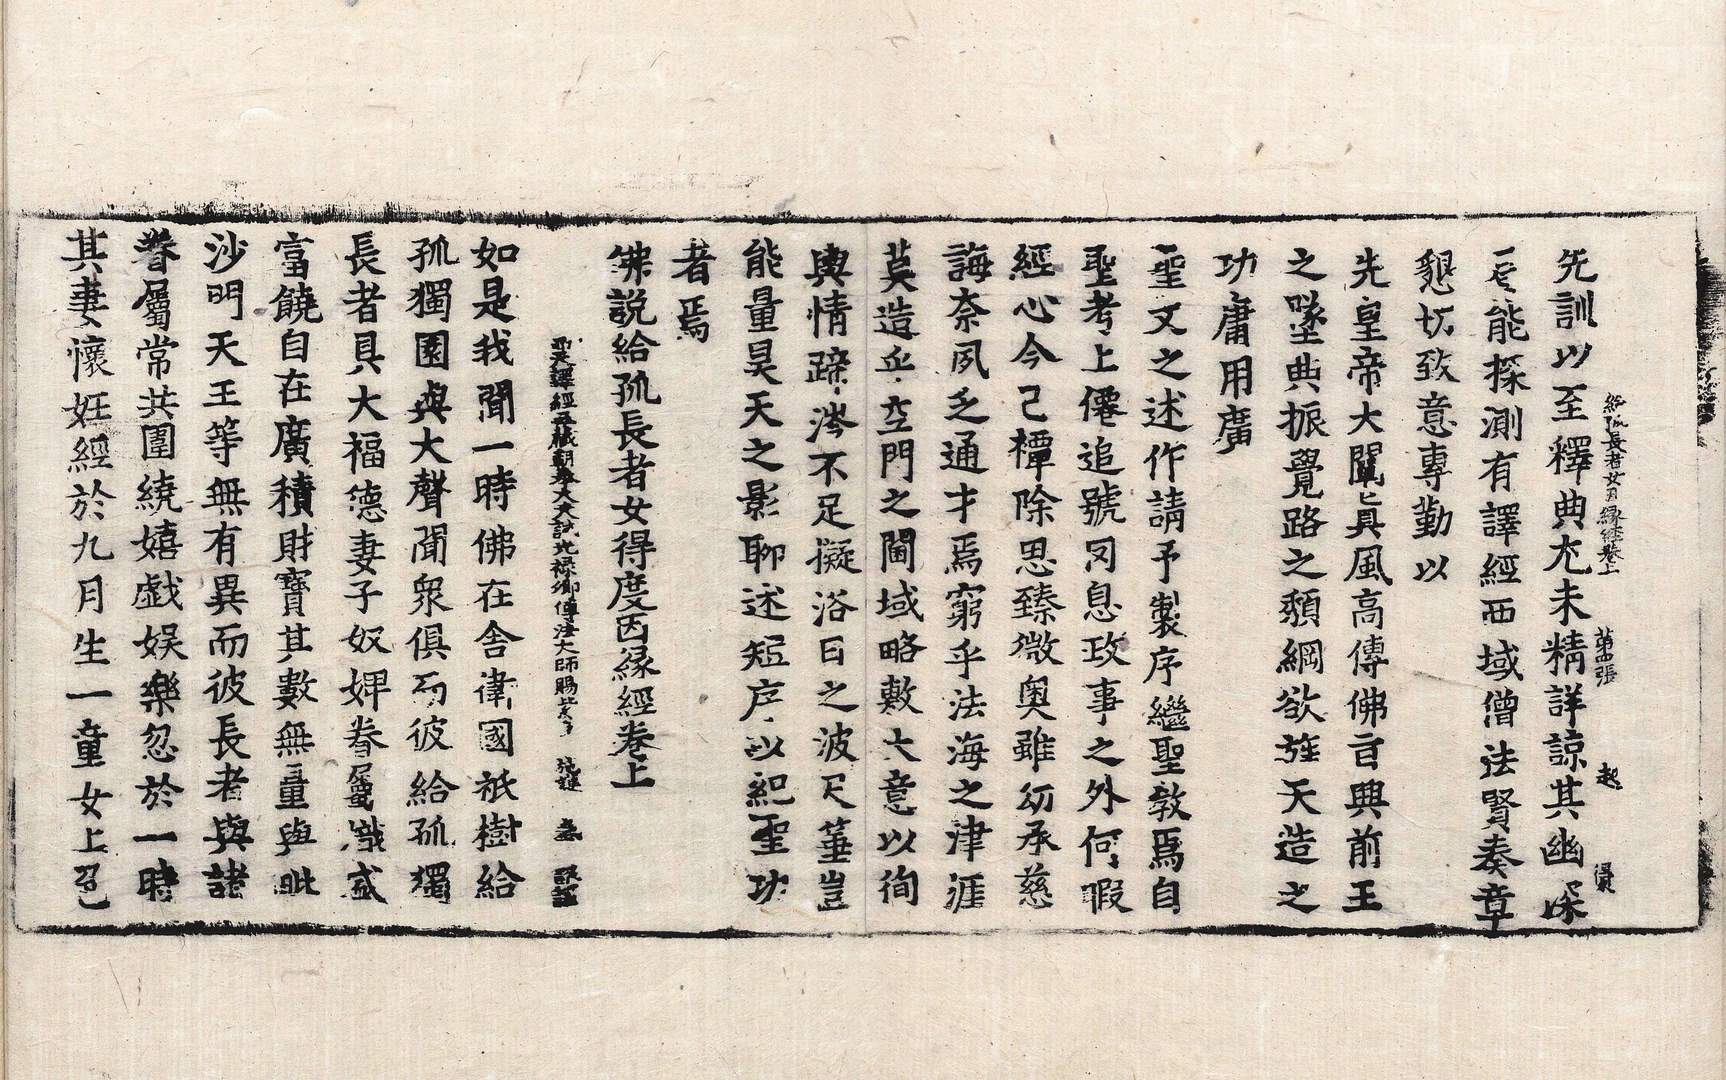 給孤長者女因縁經卷上 第四張 起
先訓以至釋典尤未精詳諒其幽深
豈能探測有譯經西域僧法賢奏章
懇切致意專勤以
先皇帝大闡真風高傳佛旨興前王
之墜典振覺路之頽綱欲旌天造之
功庸用廣
聖文之述作請予製序繼聖教焉自
聖考上僊追號罔息政事之外何暇
經心今已禫除思臻微奧雖幼承慈
誨奈夙乏通才焉窮乎法海之津涯
莫造乎空門之閫域略敷大意以徇
輿情蹄涔不足擬浴日之波尺箠豈
能量昊天之影聊述短序以紀聖功
者焉
佛説給孤長者女得度因縁經卷上
西天譯經三藏朝奉大夫試光禄卿傳法大師賜紫 施護 奉 詔譯
如是我聞一時佛在舎衛國祇樹給
孤獨園與大聲聞衆俱而彼給孤獨
長者具大福德妻子奴婢眷屬熾盛
富饒自在廣積財寶其數無量與毗
沙門天王等無有異而彼長者與諸
眷屬常共圍繞嬉戯娯樂忽於一時
其妻懷妊經於九月生一童女上色